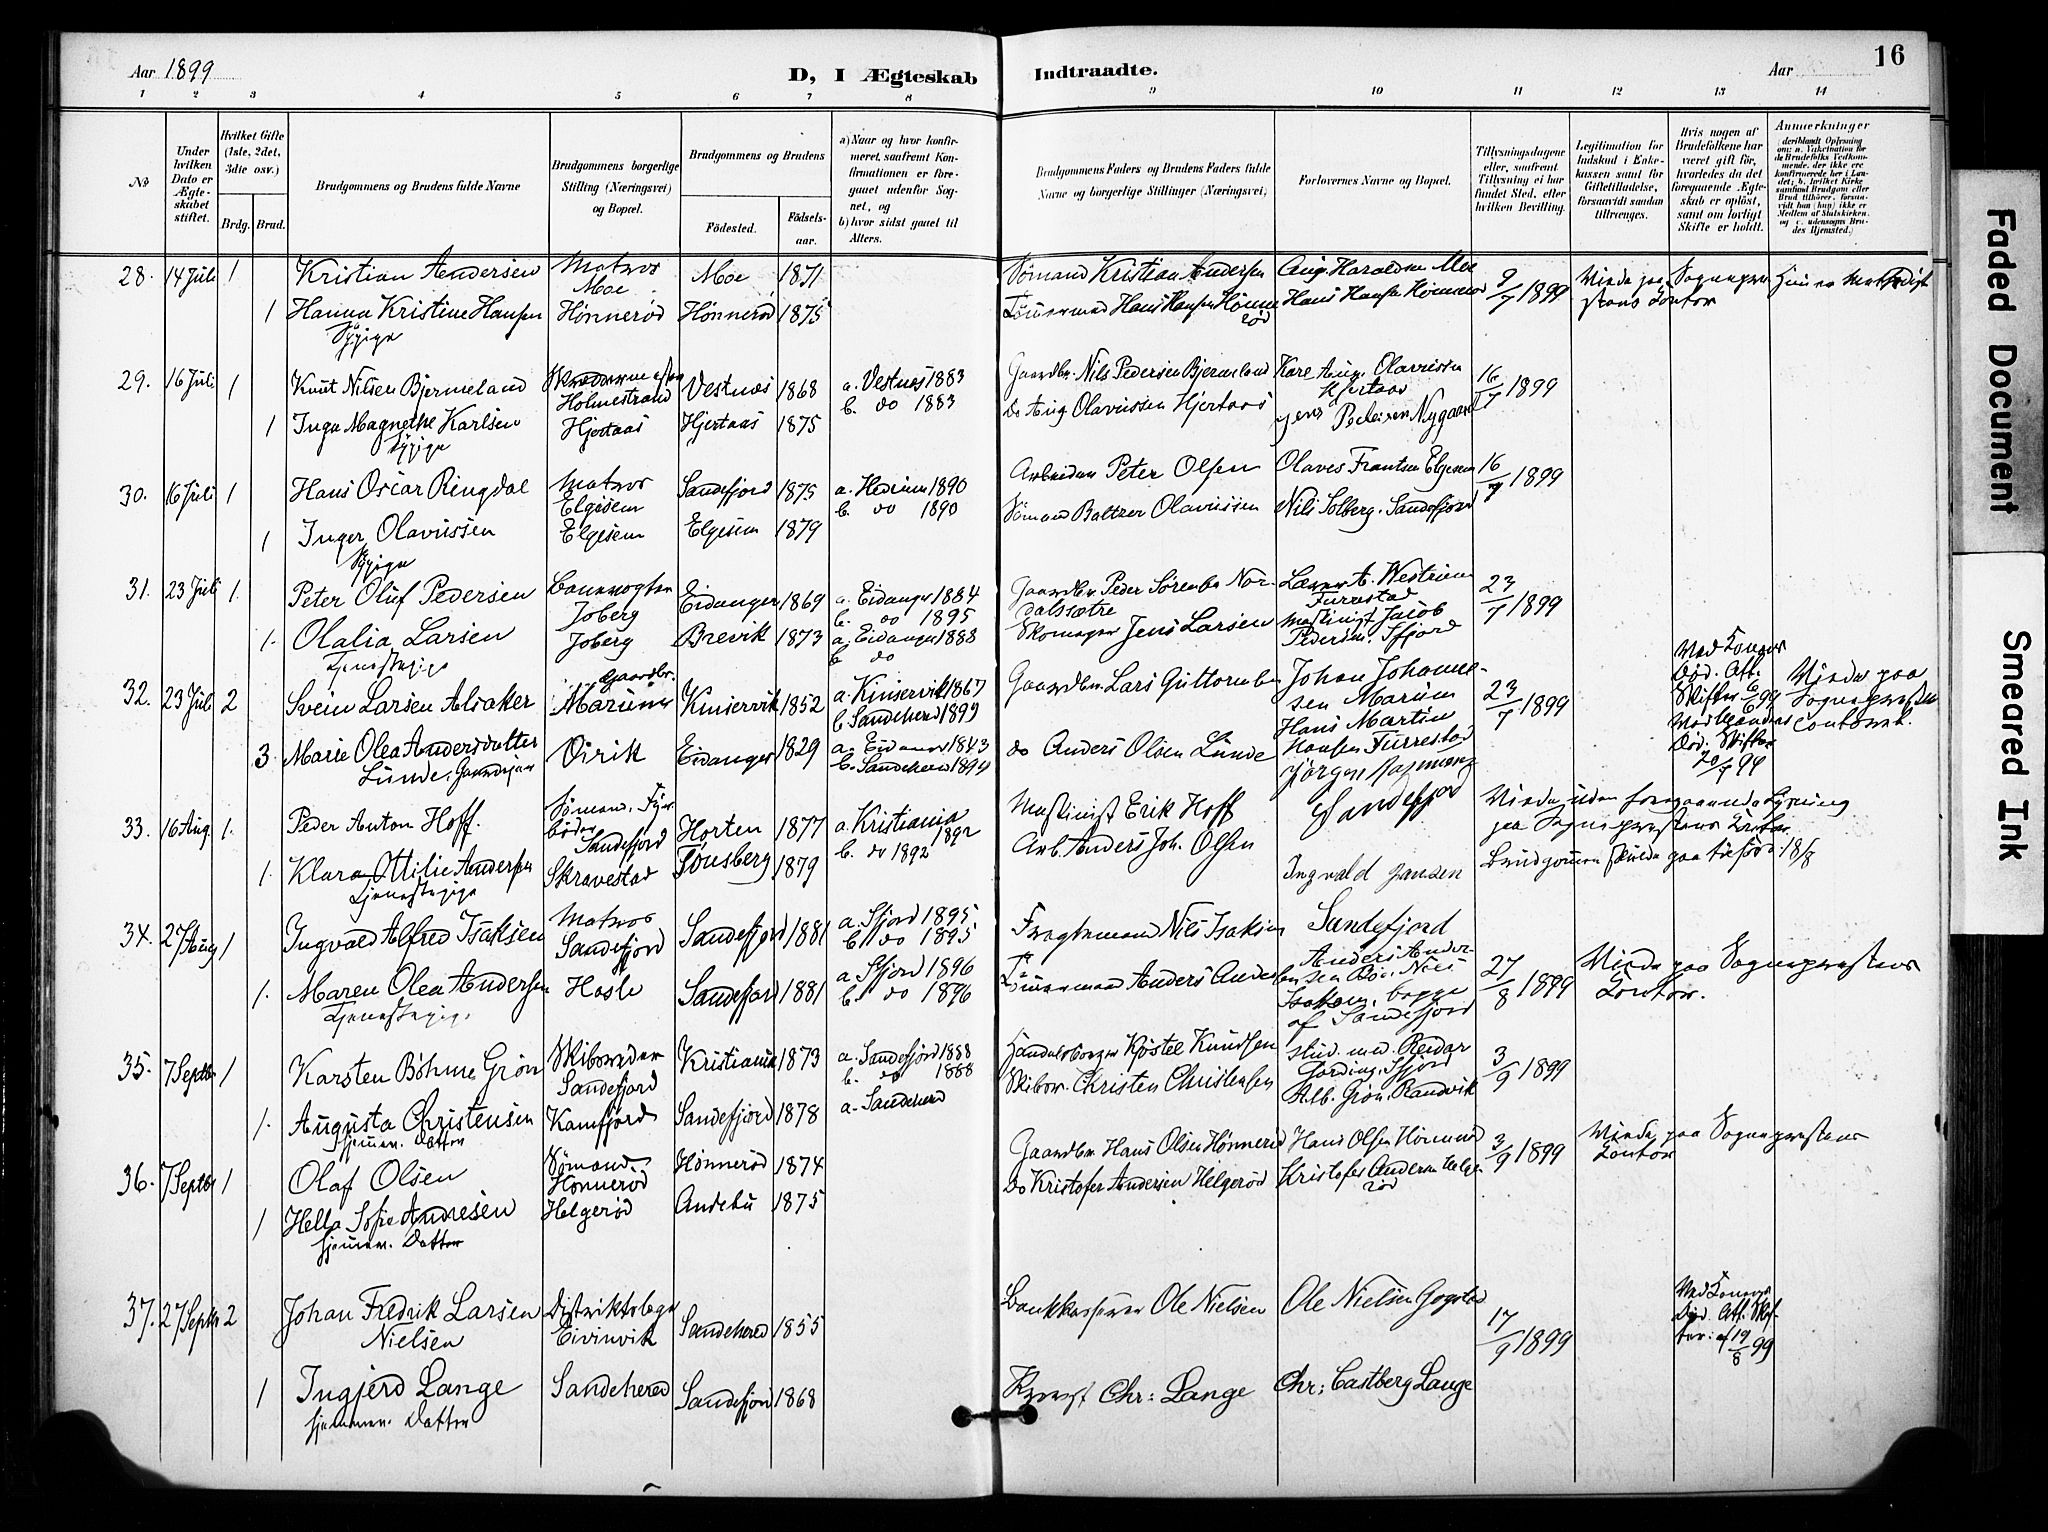 Aar 1899
D, I Ægteskab Indtraadte.
Aar
16
1 2 3 4 5 6 7 8 9 10 11 12 13 14
No
Under hvilken Dato er Ægteskabet stiftet.
Hvilket Gifte (1ste, 2det, 3die osv.)
Brdg. Brud.
Brudgommens og Brudens fulde Navne
Brudgommens borgerlige Stilling (Næringsvei) og Bopæl.
Brudgommens og Brudens
Fødested.
Fødselsaar.
a) Naar og hvor konfirmeret, saafremt Konfirmationen er foregaaet udenfor Sognet, og
b) hvor sidst gaaet til Alters.
Brudgommens Faders og Brudens Faders fulde Navne og borgerlige Stillinger (Næringsvei)
Forlovernes Navne og Bopæl.
Tillysningsdagene eller, saafremt Tillysning ei har fundet Sted, efter hvilken Bevilling.
Legitimation for Indskud i Enkekassen samt for Giftetilladelse, forsaavidt saadan tiltrænges.
Hvis nogen af Brudefolkene har været gift før, hvorledes da det foregaaende Ægteskab er opløst, samt om lovligt Skifte er holdt.
Anmærkninger
28. 14 Juli 1 Kristian Andersen Matros Moe Moe 1871 Sømand Kristian Andersen Aug. Haraldsen Moe 9/7 1899 Viede paa Sognepræstens Kontor Hun er Methodist
1 Hanna Kristine Hansen Pige Hønnerød Hønnerød 1875 Tømmermand Hans Hansen Hønnerød Hans Hansen Hønnerød
29. 16 Juli 1 Knut Nilsen Bjermeland Holmestrand Vestnæs 1868 a. Vestnæs 1883 b. do 1883 Gaardbr. Nils Pedersen Bjermeland Kare Aug. Olavussen Hjertaas 16/7 1899
1 Inga Magnethe Karlsen Pige Hjertaas Hjertaas 1875 do Aug Olavussen Hjertaas Jens Pedersen Nygaard
30. 16 Juli 1 Hans Oscar Ringdal Matros Elgesem Sandefjord 1875 a. Hedrum 1890 b. do 1890 Arbeider Peter Olsen Olaves Frantsen Elgesem 16/7 1899
1 Inger Olavussen Pige Elgesem Elgesem 1879 Sømand Baltzer Olavussen Nils Solberg. Sandefjord
31. 23 Juli 1. Peter Oluf Pedersen Banevogter Joberg Eidanger 1869 a. Eidanger 1884 b. do 1895 Gaardbr. Peder Sørensen Nordalssætre Lærer A. Westrum Furrestad 23/7 1899
1. Olalia Larsen Tjenestepige Joberg Brevik 1873 a. Eidanger 1888 b do Skomager Jens Larsen Maskinist Jacob Pedersen. Sfjord
32. 23 Juli 2 Svein Larsen Alsaker Gaardbr. Marum Kinservik 1852 a. Kinservik 1867 b. Sandeherd 1899 Gaardbr. Lars Guttormsen Johan Johannesen Marum 23/7 1899 Ved Konens Død. Att. Skifter Viede paa Sognepræstens Contoret.
3. Marie Olea Andersdatter Lunde. Virik Eidanger 1829 a. Eidanger 1843 b. Sandeherd 1894 do Anders Olsen Lunde Hans Martin Hansen Furrestad Ved Mandens Død. Skifter 94
33. 16 Aug 1. Peder Anton Hoff. Sømand. Fyrbøder Sandefjord Horten 1877 a. Kristiania 1892 b. do 1892 Maskinist Erik Hoff Jørgen Sandefjord Viede uden foregaaende Lysning paa Sognepræstens Kontor.
1. Klara Ottilie Andersen Tjenestepige Skravestad Tønsberg 1879 Arb. Anders Joh. Olsen Ingvald Jansen Brudgommen skulde paa 18/8
34. 27 Aug 1 Ingvald Alfred Isaksen Matros Sandefjord Sandefjord 1881 a. Sfjord 1895 b. do 1895 Fragtemand Nils Isaksen Sandefjord
1. Maren Olea Andersen Tjenestepige. Hasle Sandefjord 1881 a. Sfjord 1896 b. do 1896 Tømmermand Anders Andersen Anders Andersen Bø. Nils Isaksen. begge af Sandefjord 27/8 1899 Viede paa Sognepræstens Kontor.
35. 7 Septbr 1 Karsten Bøhme Grøn Skibsreder Sandefjord Kristiania 1873 a. Sandefjord 1888 b. do 1888 Handelsborger Kjøstel Knudsen stud. med. Reidar Gording. Sfjord 3/9 1899
1. Augusta Christensen hjemmev. Datter Kamfjord Sandefjord 1878 a. Sandeherd Skibsr. Christen Christensen Alb. Grøn. Ranvik
36. 7 Septbr 1 Olaf Olsen Sømand Hønnerød Hønnerød 1874 Gaardbr Hans Olsen Hønnerød Hans Olsen Hønnerød 3/9 1899 Viede paa Sognepræstens Kontor
1 Hella Sofie Andresen hjemmev. Datter Helgerød Andebu 1875 do Kristofer Andersen Helgerød Kristofer Andersen Helgerød
37. 27 Septbr 2 Johan Fredrik Larsen Nielsen Distriktslæge Eivinvik Sandeherred 1855 Bankkasserer Ole Nielsen Ole Nielsen Gogstad 17/9 1899 Ved Konens Død. Att. Skifter. af 19/8 99
1 Ingjerd Lange hjemmev. Datter Sandeherred Sandefjord 1868 Chr: Lange Chr: Castberg Lange
Faded Document
Smeared Ink